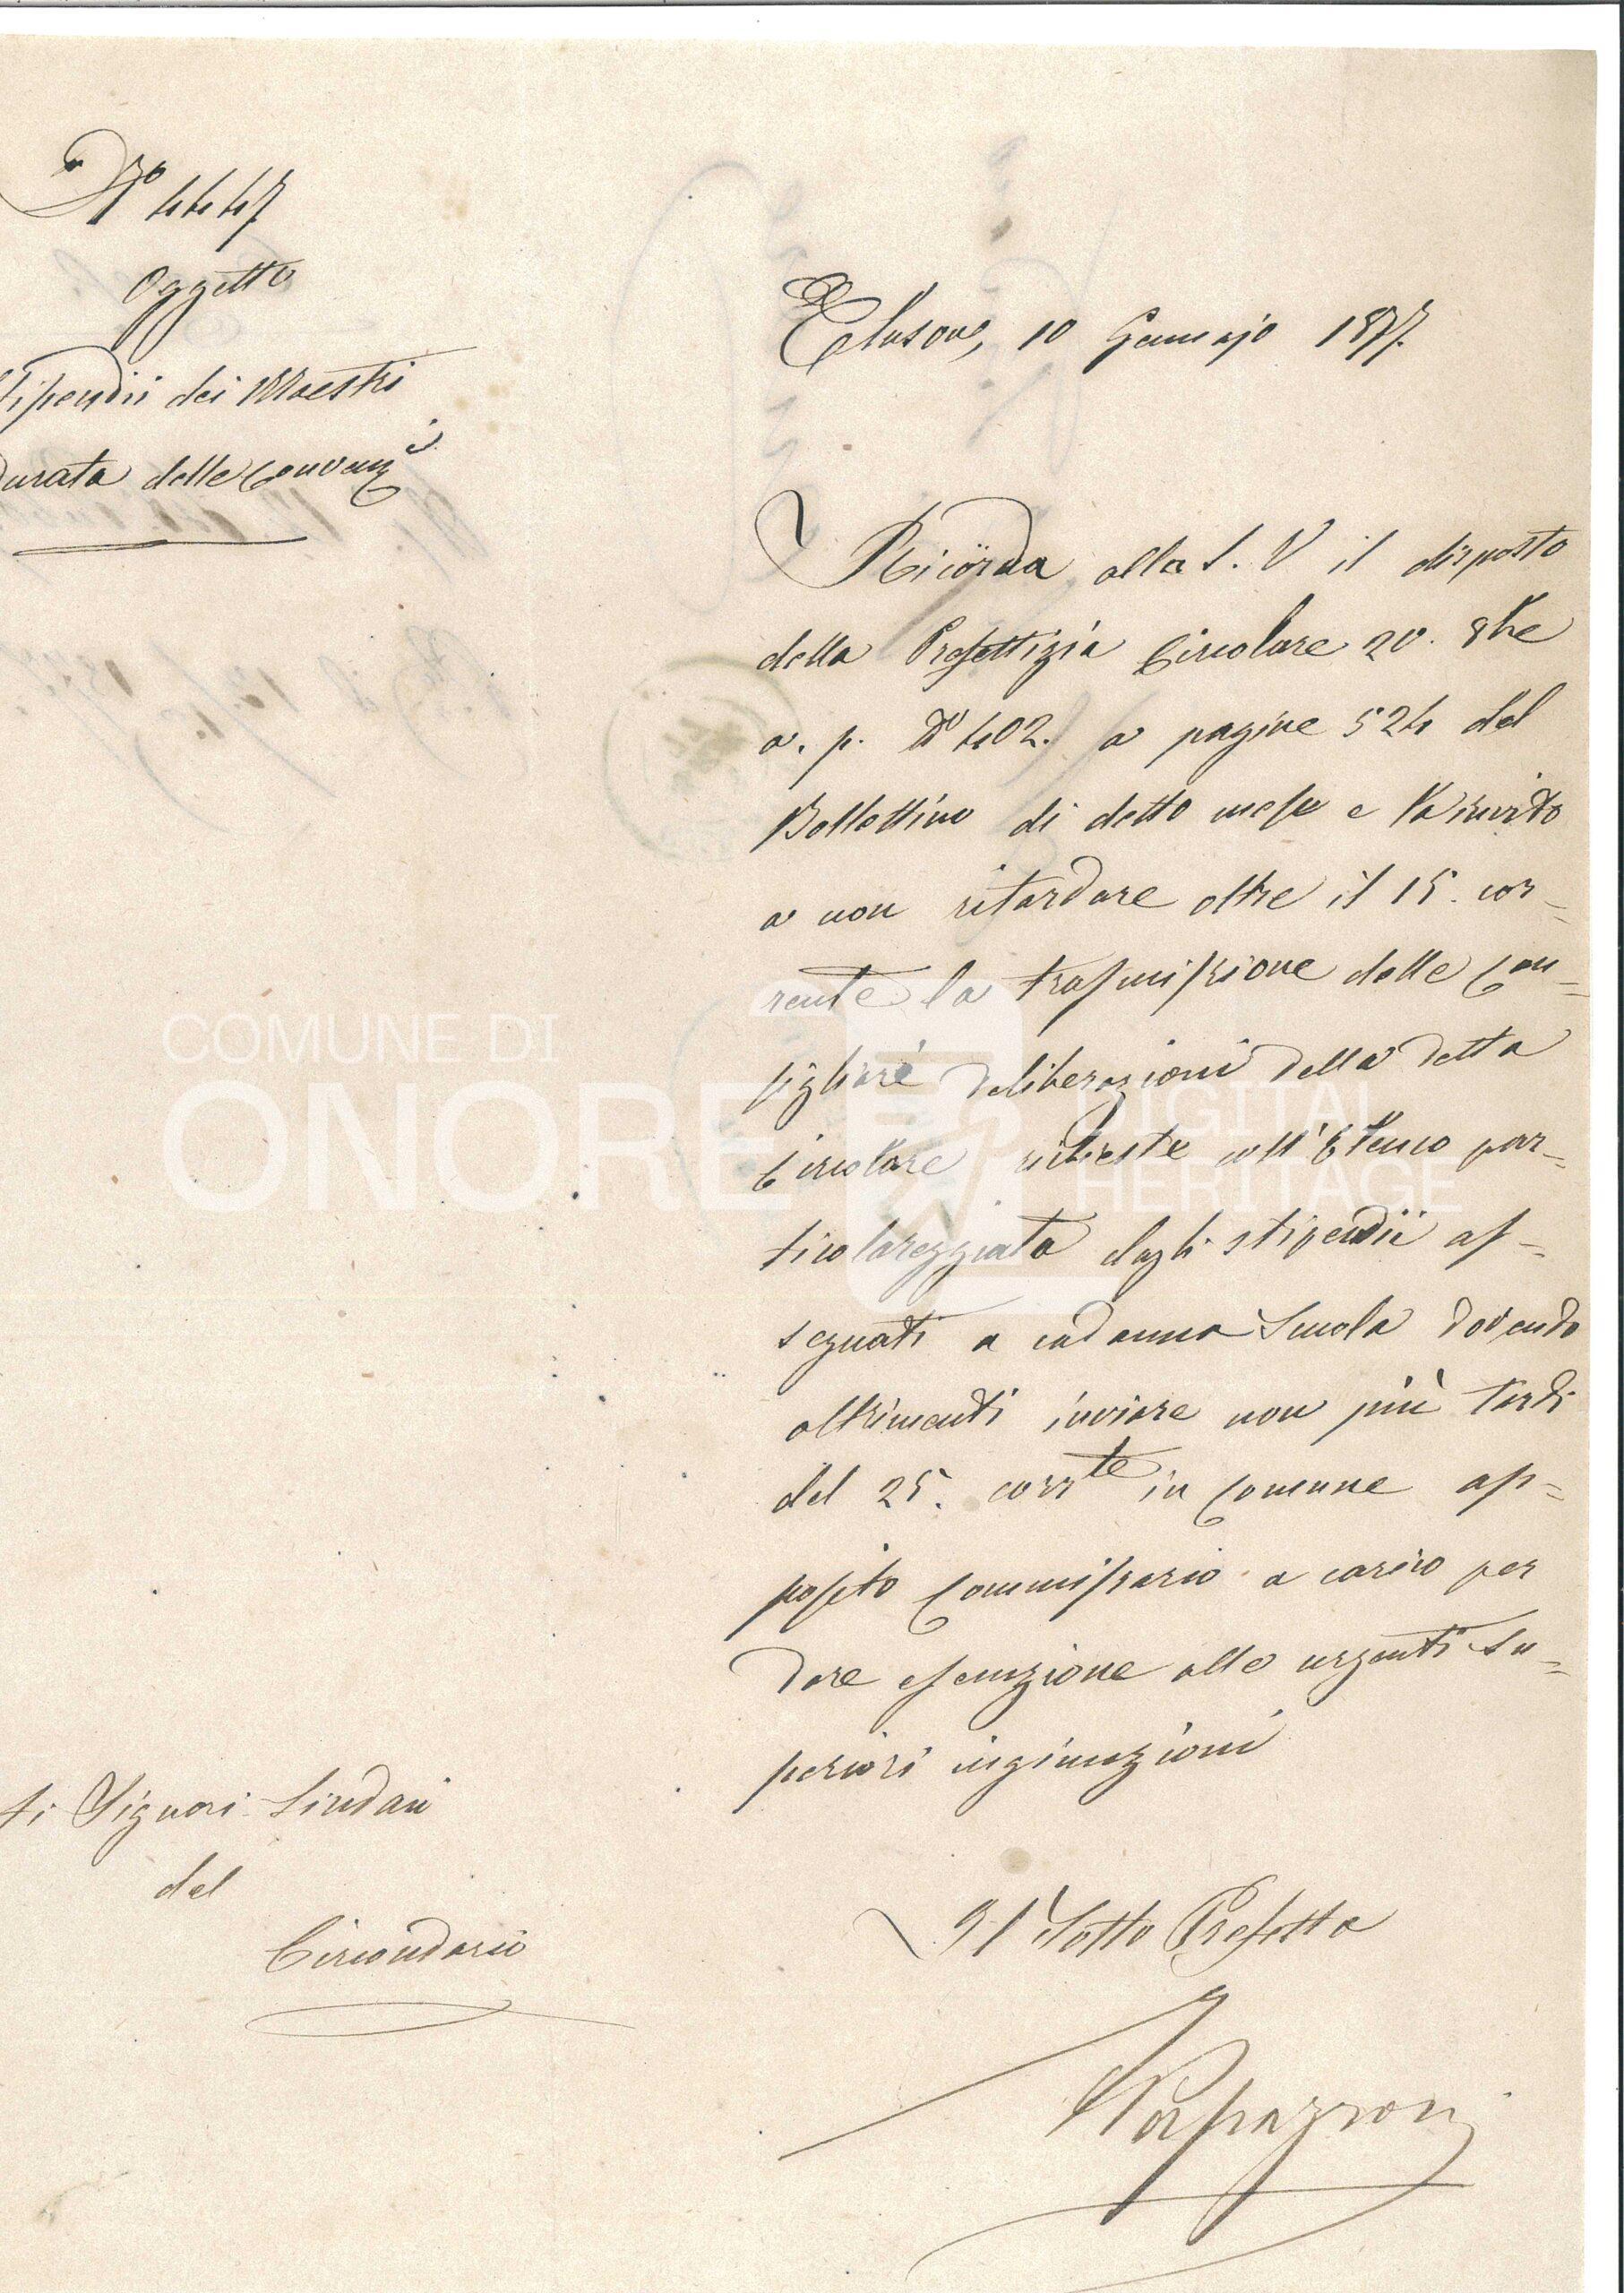 N° 4447
Oggetto
Stipendii dei Maestri
Durata delle Convenzi
Clusone, 10 Gennajo 1877.
Ricorda alla S. V il disposto
della Prefettizia Circolare 20. 8bre
a. p. N° 402. a pagine 524 del
Bollettino di detto mese e la invito
a non ritardare oltre il 15. cor=
rente la trasmissione delle Con=
sigliari deliberazioni dalla detta
Circolare richieste coll'Elenco par=
ticolareggiato degli stipendii as=
segnati a cadauna Scuola dovendo
altrimenti inviare non più tardi
del 25. corrte in Comune ap=
posito Commissario a carico per
dare esecuzione alle urgenti su=
periori ingiunzioni
Il Sotto Prefetto
ti Signori Sindaci
del
Circondario
COMUNE DI
ONORE
DIGITAL
HERITAGE